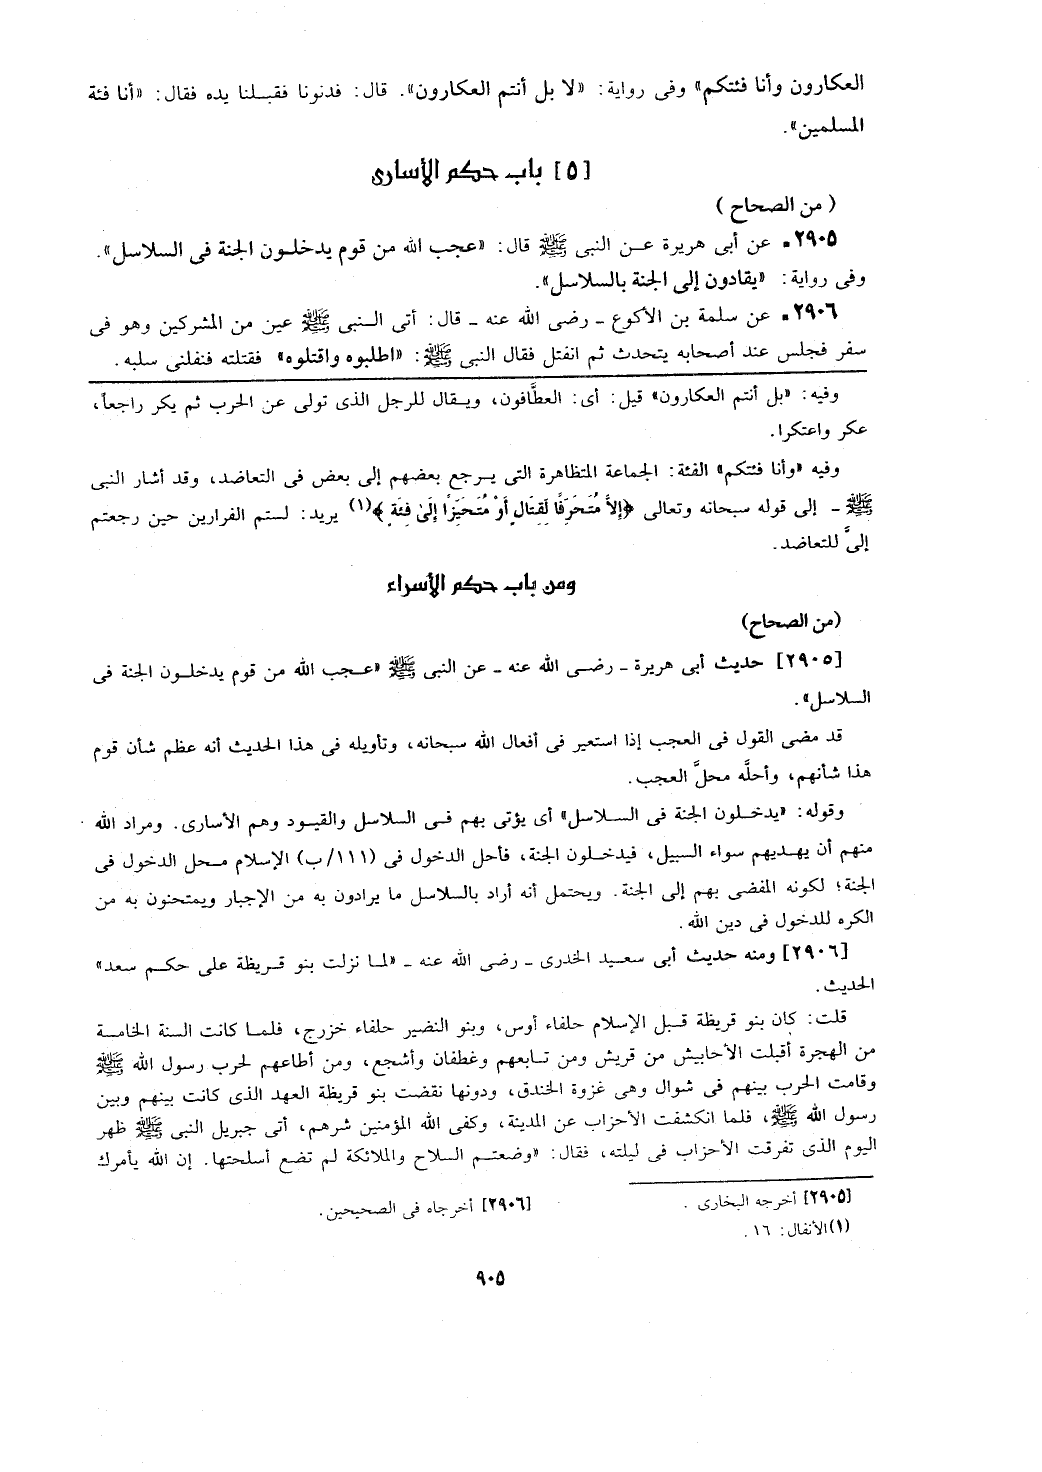 العكارون وأنا فئتكم» وفى رواية: «لا بل أنتم العكارون». قال: فدنونا فقبلنا يده فقال: «أنا فئة
المسلمين».
[٥] باب حكم الأسارى
(من الصحاح)
٢٩٠٥. عن أبى هريرة عن النبى ﷺ قال: «عجب الله من قوم يدخلون الجنة فى السلاسل».
وفى رواية: «يقادون إلى الجنة بالسلاسل».
٢٩٠٦. عن سلمة بن الأكوع ـ رضى الله عنه ـ قال: أتى النبى ﷺ عين من المشركين وهو فى
سفر فجلس عند أصحابه يتحدث ثم انفتل فقال النبى ﷺ: «اطلبوه واقتلوه» فقتلته فنفلنى سلبه.
وفيه: «بل أنتم العكارون» قيل: أى: العطَّافون، ويقال للرجل الذى تولى عن الحرب ثم يكر راجعاً،
عكر واعتكرا.
وفيه «وأنا فئتكم» الفئة: الجماعة المتظاهرة التى يرجع بعضهم إلى بعض فى التعاضد، وقد أشار النبى
ﷺ ـ إلى قوله سبحانه وتعالى ﴿إِلاَّ مُتَحَرِّفًا لِّقِتَالٍ أَوْ مُتَحَيِّزًا إِلَىٰ فِئَةٍ﴾(١) يريد: لستم الفرارين حين رجعتم
إلىَّ للتعاضد.
ومن باب حكم الأسراء
(من الصحاح)
[٢٩٠٥] حديث أبى هريرة ـ رضى الله عنه ـ عن النبى ﷺ «عجب الله من قوم يدخلون الجنة فى
السلاسل».
قد مضى القول فى العجب إذا استعير فى أفعال الله سبحانه، وتأويله فى هذا الحديث أنه عظم شأن قوم
هذا شأنهم، وأحلَّه محلَّ العجب.
وقوله: «يدخلون الجنة فى السلاسل» أى يؤتى بهم فى السلاسل والقيود وهم الأسارى. ومراد الله
منهم أن يهديهم سواء السبيل، فيدخلون الجنة، فأحل الدخول فى (١١١/ب) الإسلام محل الدخول فى
الجنة؛ لكونه المفضى بهم إلى الجنة. ويحتمل أنه أراد بالسلاسل ما يرادون به من الإجبار ويمتحنون به من
الكره للدخول فى دين الله.
[٢٩٠٦] ومنه حديث أبى سعيد الخدرى ـ رضى الله عنه ـ «لما نزلت بنو قريظة على حكم سعد»
الحديث.
قلت: كان بنو قريظة قبل الإسلام حلفاء أوس، وبنو النضير حلفاء خزرج، فلما كانت السنة الخامسة
من الهجرة أقبلت الأحابيش من قريش ومن تابعهم وغطفان وأشجع، ومن أطاعهم لحرب رسول الله ﷺ
وقامت الحرب بينهم فى شوال وهى غزوة الخندق، ودونها نقضت بنو قريظة العهد الذى كانت بينهم وبين
رسول الله ﷺ، فلما انكشفت الأحزاب عن المدينة، وكفى الله المؤمنين شرهم، أتى جبريل النبى ﷺ ظهر
اليوم الذى تفرقت الأحزاب فى ليلته، فقال: «وضعتم السلاح والملائكة لم تضع أسلحتها. إن الله يأمرك
[٢٩٠٥] أخرجه البخارى. [٢٩٠٦] أخرجاه فى الصحيحين.
(١) الأنفال: ١٦.
٩٠٥